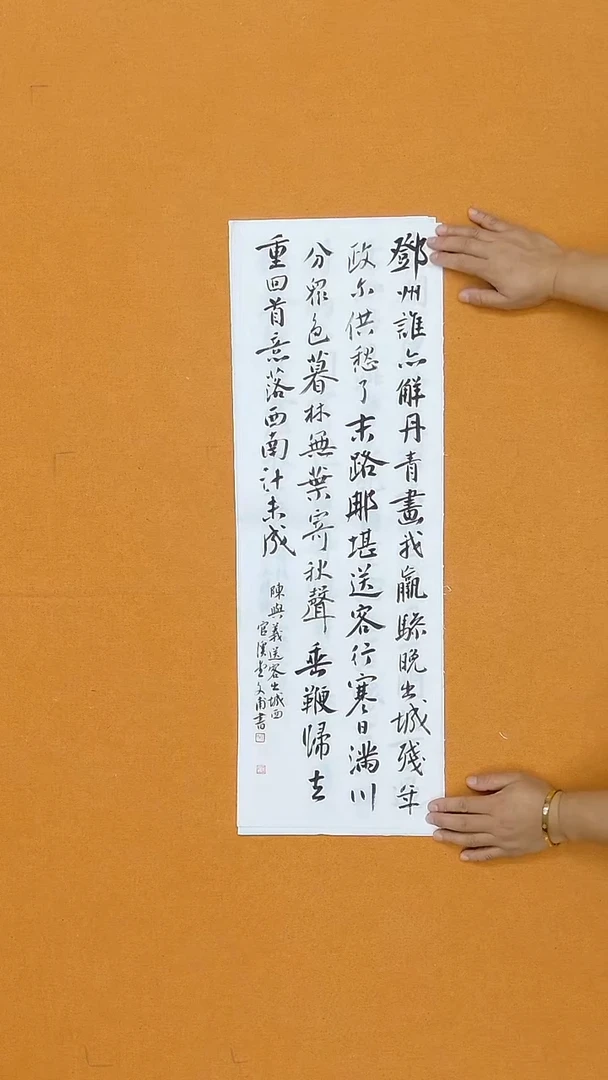 鄧州誰亦解丹青畫我羸驂晚出城殘年
政尔供愁了末路那堪送客行寒日滿川
分眾色暮林無葉寄秋聲垂鞭歸去
重回首意落西南計未成
陳與義送客出城西
官溪堂文甫書